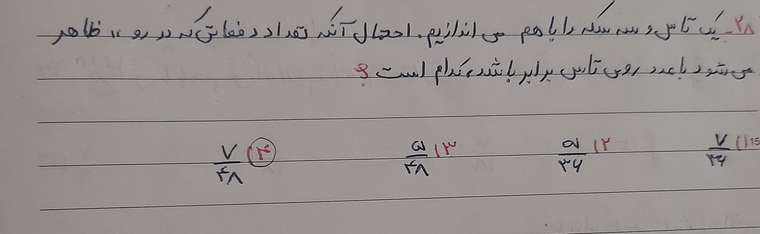 ۲۸ـ یک تاس و سه سکه را با هم می اندازیم. احتمال آنکه تعداد دفعاتی که سکه رو ،، ظاهر
می شود با عدد روی تاس برابر باشد، کدام است ؟
۱) ۷/۳۶ ۲) ۵/۳۶ ۳) ۵/۴۸ ۴) ۷/۴۸
15